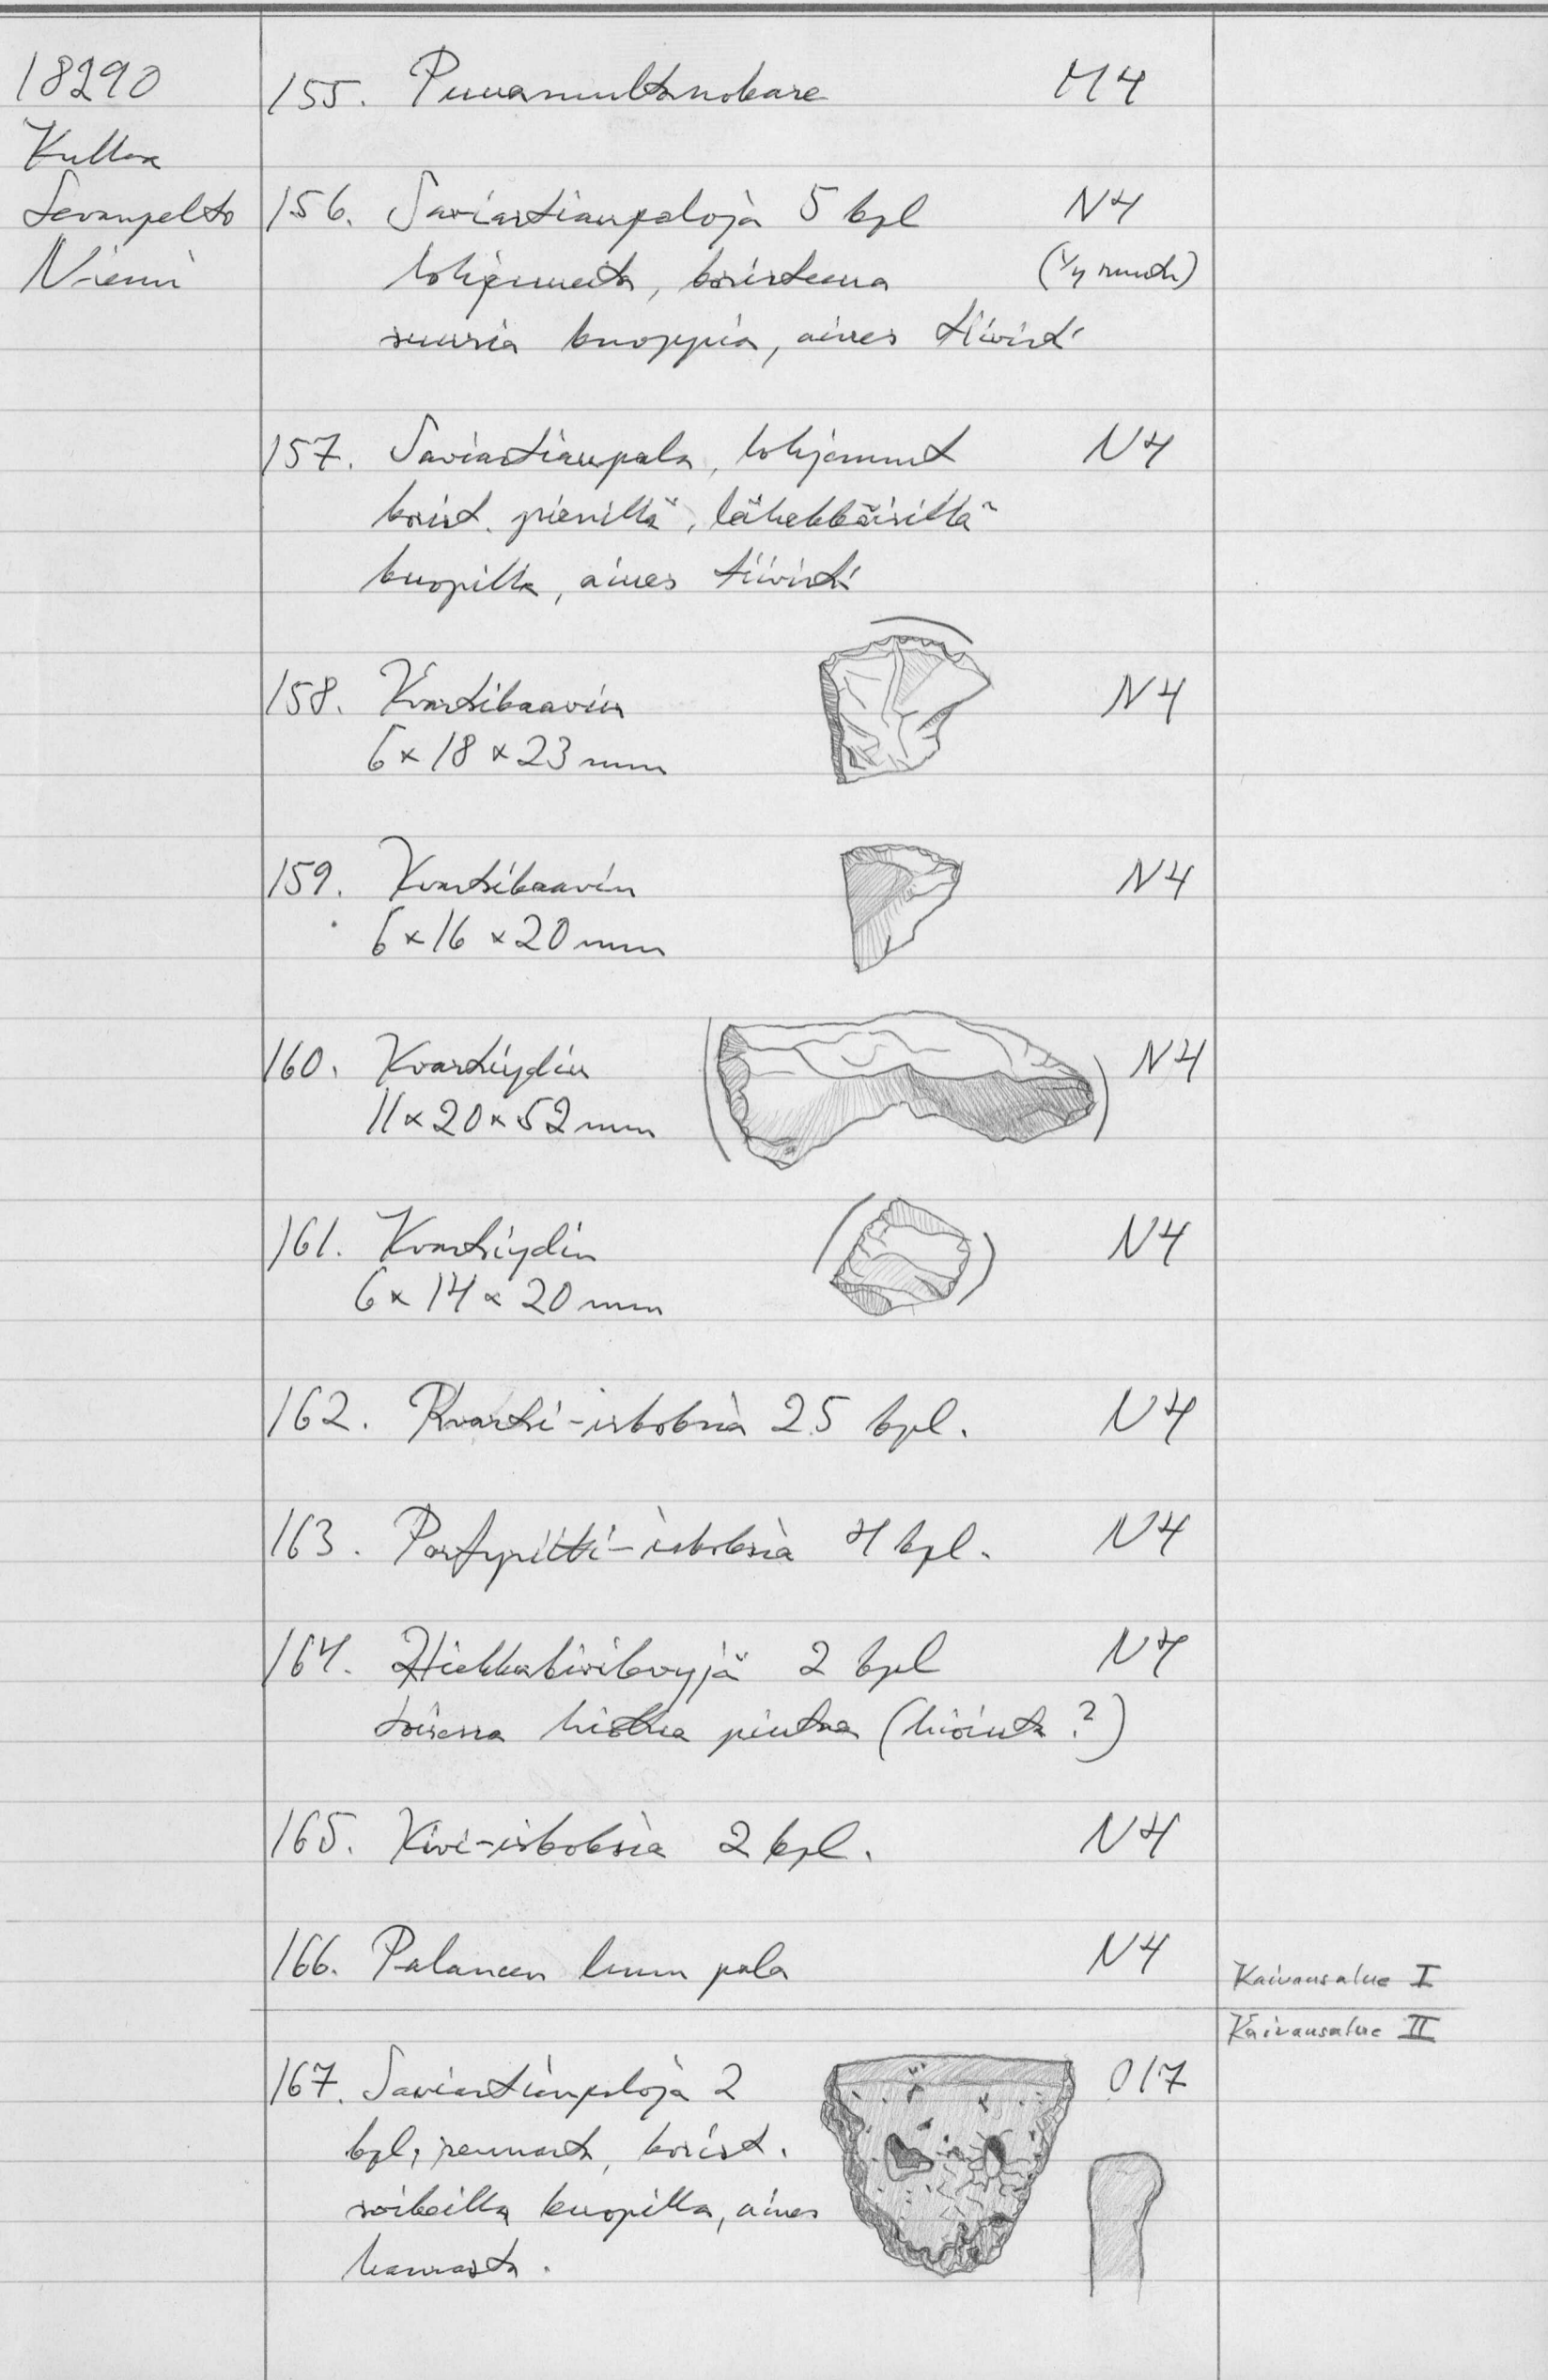 18290
Kullaa
Levanpelto
Niemi
155. Punamultanokare M4
156. Saviastianpaloja 5 kpl N4
lohjenneita, koristeena (1/4 ruutu)
suuria kuoppia, aines tiivist.
157. Saviastianpala, lohjennut N4
korist. pienillä, lähekkäisillä
kuopilla, aines tiivist.
158. Kvartsikaavin N4
6 x 18 x 23 mm
159. Kvartsikaavin N4
6 x 16 x 20 mm
160. Kvartsiydin N4
11 x 20 x 52 mm
161. Kvartsiydin N4
6 x 14 x 20 mm
162. Kvartsi-iskoksia 25 kpl. N4
163. Porfyriitti-iskoksia 4 kpl. N4
164. Hiekkakivilevyjä 2 kpl N4
toisessa hiottua pintaa (hiointa?)
165. Kivi-iskoksia 2 kpl. N4
166. Palaneen luun pala N4
Kaivausalue I
Kaivausalue II
167. Saviastianpaloja 2 O17
kpl, reunast., korist.
soikeilla kuopilla, aines
karkeata.